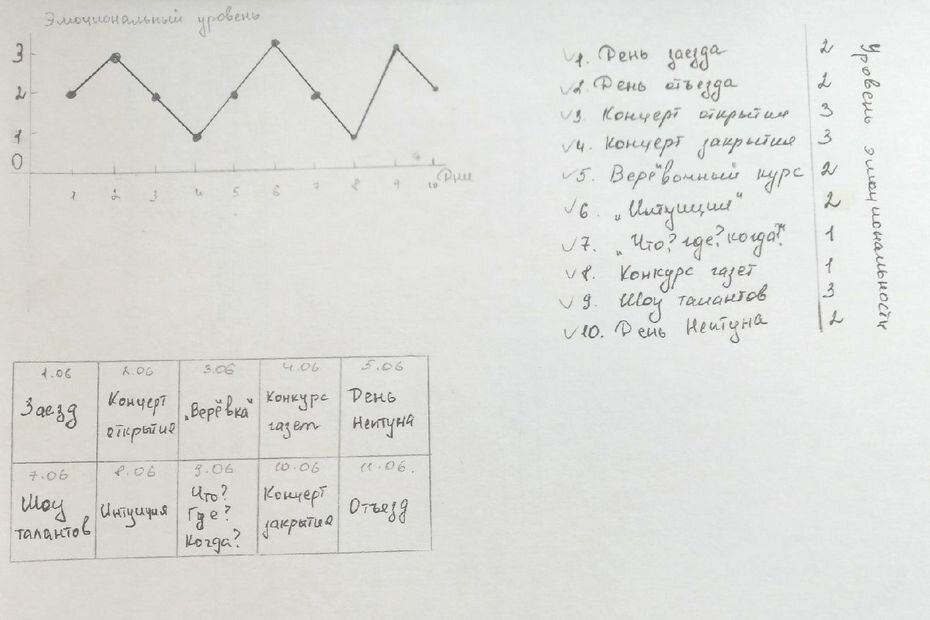 Эмоциональный уровень
3
2
1
0
1 2 3 4 5 6 7 8 9 10 Дни
1. День заезда 2
2. День отъезда 2
3. Концерт открытия 3
4. Концерт закрытия 3
5. Верёвочный курс 2
6. „Интуиция" 2
7. „Что? где? когда?" 1
8. Конкурс газет 1
9. Шоу талантов 3
10. День Нептуна 2
Уровень эмоциональности
1.06 2.06 3.06 4.06 5.06
Заезд
Концерт
открытия
„Верёвка"
Конкурс
газет
День
Нептуна
7.06 8.06 9.06 10.06 11.06.
Шоу
талантов
Интуиция
Что?
Где?
Когда?
Концерт
закрытия
Отъезд